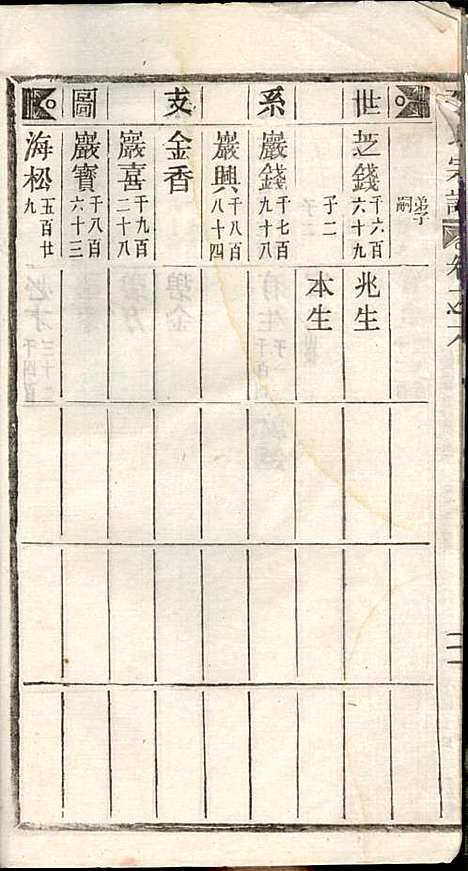 世系支圖
弟子嗣
芝錢 千六百六十九
兆生
子二
本生
巖錢 千七百九十八
巖興 千八百八十四
金香
巖喜 千九百二十八
巖寶 千八百六十三
海松 五百廿九